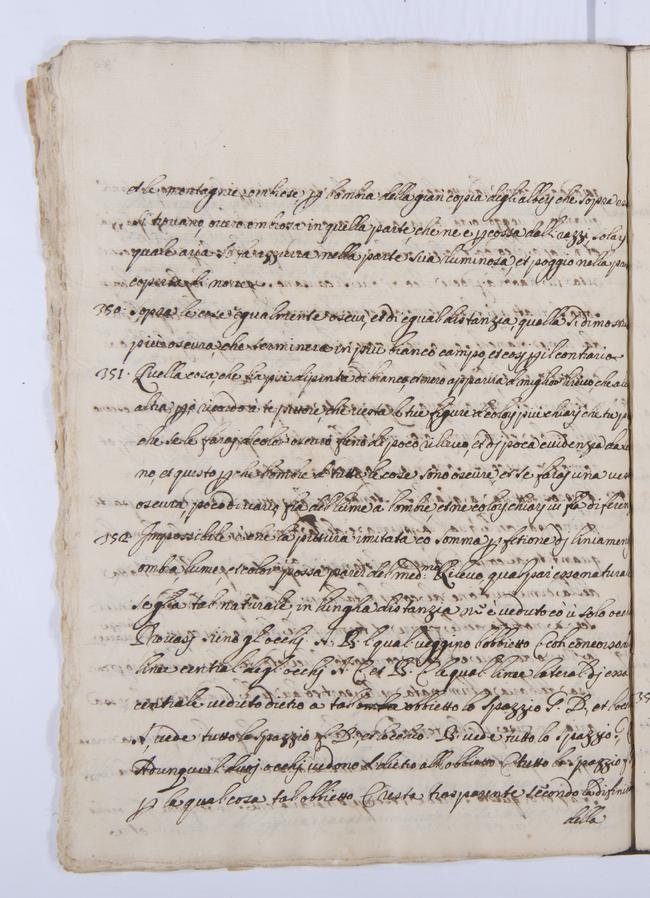 et le montagnie ombrose p l'ombra della gran copia degli alberj che sopra
si trovano, overo ombrosa in quella parte, che ne e pcossa dall razzi solarj
quale aria si fa azzurra nella parte sua luminosa, et poggio nella
coperta di
350. Sopra le cose egualmente oscure, et di egual distanzia quella si dimostra
più oscura, che terminera in più bianco campo, et cosi p il contrario
351. Quella cosa, che fia più dipinta di bianco, et nero apparira di miglior rilievo che
altra p ricordo a te pittore, che vesta le tue figure di colorj piu chiarj che tu
che se le faraj di color oscuro fieno di poco rilievo, et di poca evidenza da
no, et questo p che l'ombre di tutte le cose sono oscure, et se faraj una veste
oscura poco divario fia dal lume a l'ombre et ne colorj chiarj vi fia
352. Impossibile è che la pittura imitata co somma pfetione di liniamenti
ombra, lume, et color possa parer del med.mo Rilevo, qual pai esso naturale
se gia tal naturale in lungha distanzia no è veduto co un solo
Provasj sieno gl occhj A. B. l qual veggino l'obbietto C co'l concorso
linee centrali degli occhj A. C et B. C la qual linee laterali di essa
centrale vedeno dietro a tal obbietto lo spazzio G. D, et l
A, vede tutto lo spazzio f. D, et l'occhio B. vede tutto lo spazzio
Adunque li duoj occhj vedono di dietro all obbietto C tutto lo spazzio
p la qual cosa tal obbietto C resta trasparente secondo la
della